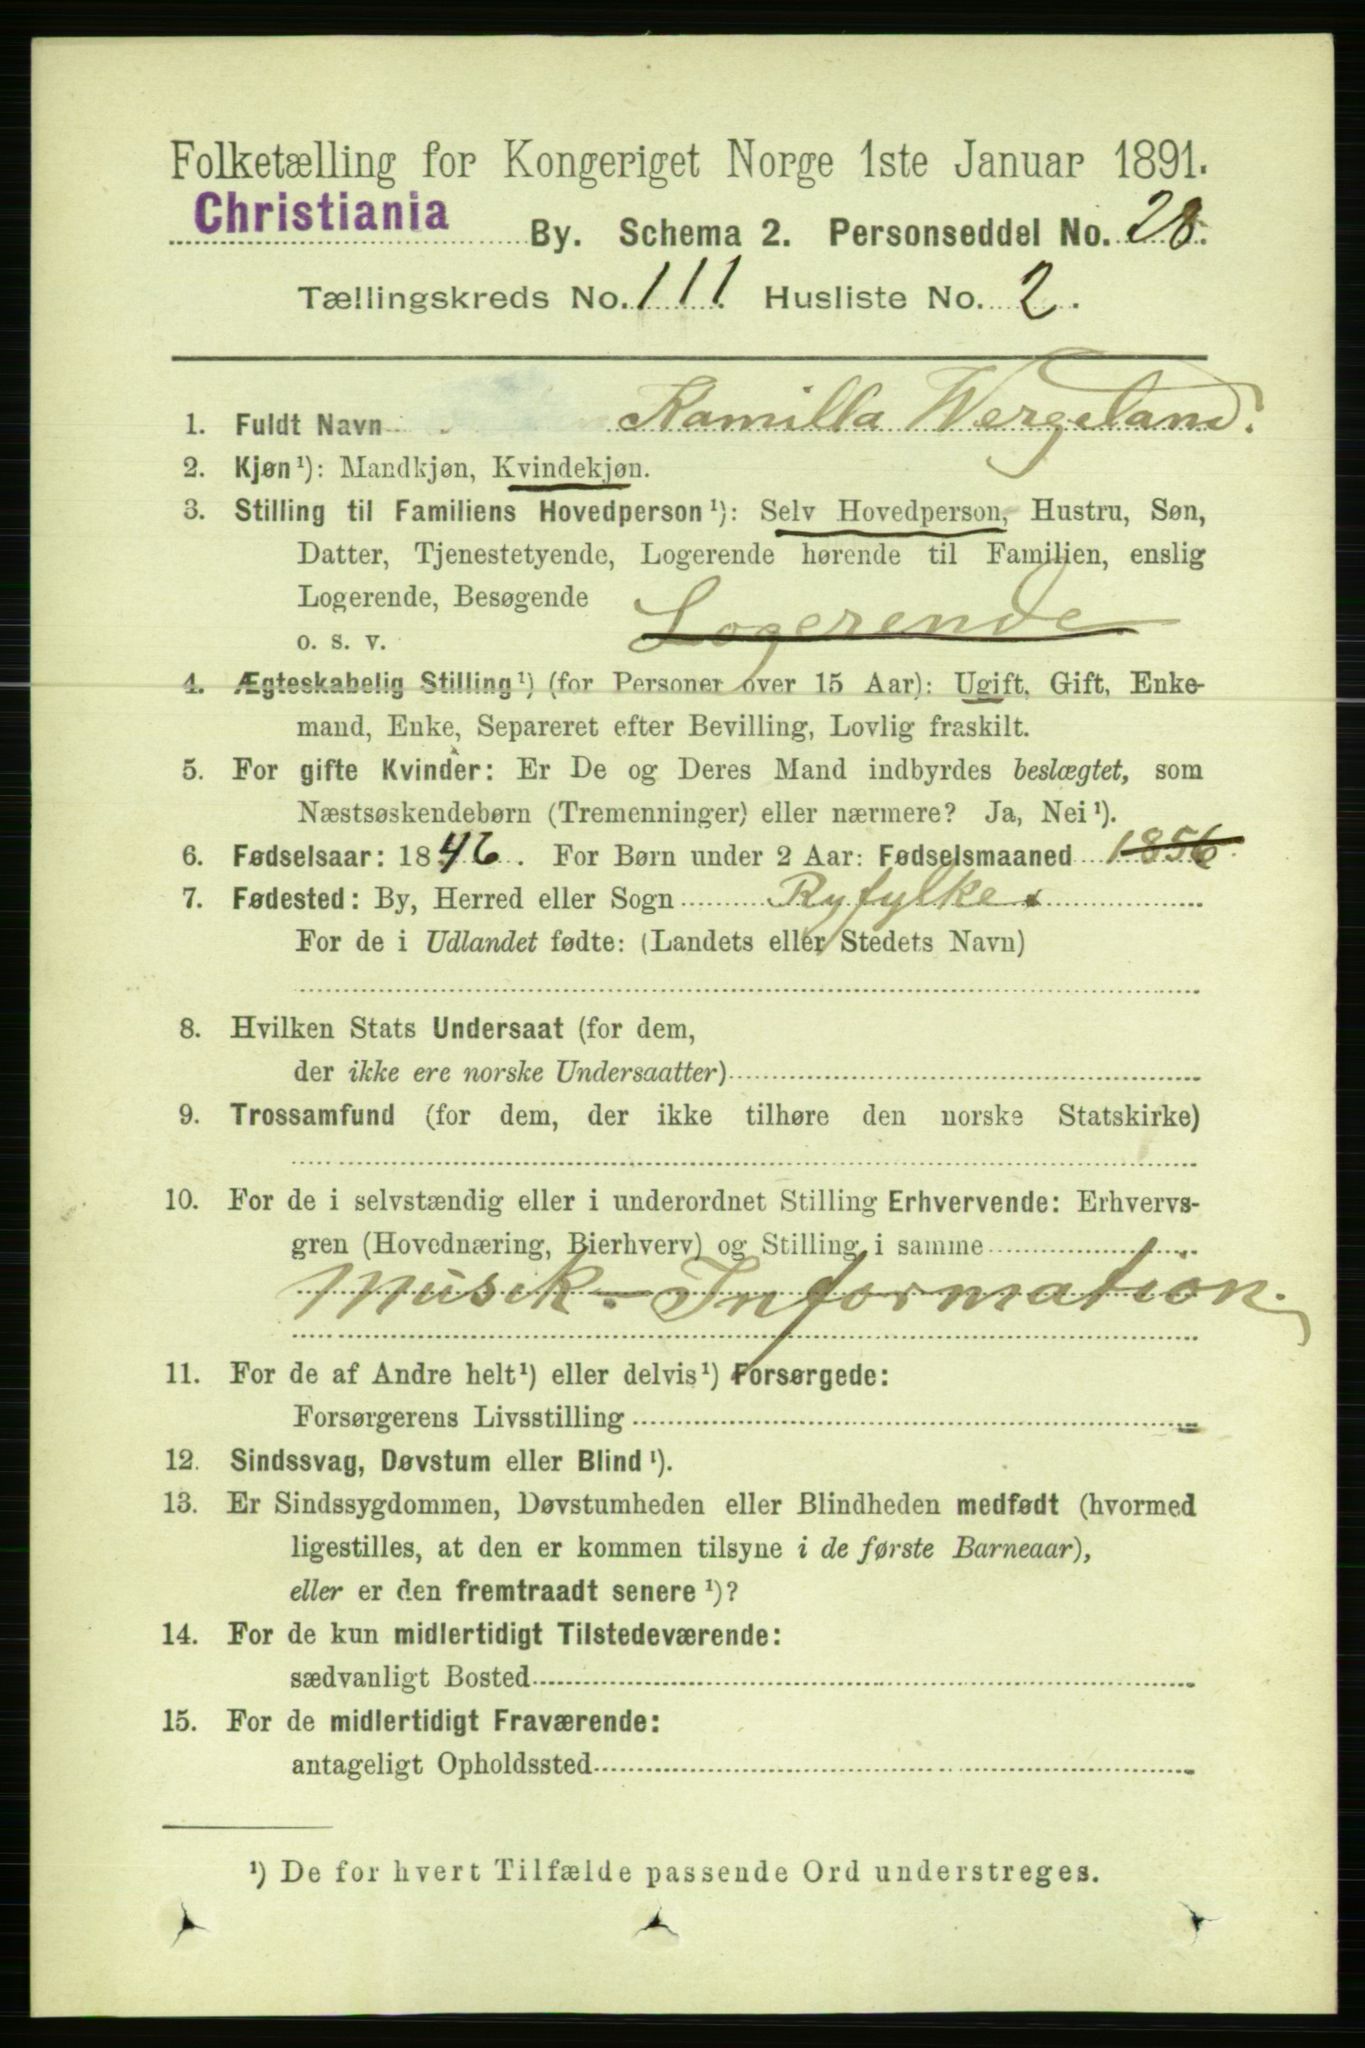 Folketælling for Kongeriget Norge 1ste Januar 1891.
Christiania By. Schema 2. Personseddel No. 28.
Tællingskreds No. 111 Husliste No. 2.
1. Fuldt Navn Kamilla Wergeland.
2. Kjøn¹): Mandkjøn, Kvindekjøn.
3. Stilling til Familiens Hovedperson¹): Selv Hovedperson, Hustru, Søn,
Datter, Tjenestetyende, Logerende hørende til Familien, enslig
Logerende, Besøgende
o. s. v. Logerende
4. Ægteskabelig Stilling¹) (for Personer over 15 Aar): Ugift, Gift, Enke-
mand, Enke, Separeret efter Bevilling, Lovlig fraskilt.
5. For gifte Kvinder: Er De og Deres Mand indbyrdes beslægtet, som
Næstsøskendebørn (Tremenninger) eller nærmere? Ja, Nei¹).
6. Fødselsaar: 1846. For Børn under 2 Aar: Fødselsmaaned 1856.
7. Fødested: By, Herred eller Sogn Ryfylke
For de i Udlandet fødte: (Landets eller Stedets Navn)
8. Hvilken Stats Undersaat (for dem,
der ikke ere norske Undersaatter)
9. Trossamfund (for dem, der ikke tilhøre den norske Statskirke)
10. For de i selvstændig eller i underordnet Stilling Erhvervende: Erhvervs-
gren (Hovednæring, Bierhverv) og Stilling i samme
Musik-Information.
11. For de af Andre helt¹) eller delvis¹) Forsørgede:
Forsørgerens Livsstilling
12. Sindssvag, Døvstum eller Blind¹).
13. Er Sindssygdommen, Døvstumheden eller Blindheden medfødt (hvormed
ligestilles, at den er kommen tilsyne i de første Barneaar),
eller er den fremtraadt senere¹)?
14. For de kun midlertidigt Tilstedeværende:
sædvanligt Bosted
15. For de midlertidigt Fraværende:
antageligt Opholdssted
¹) De for hvert Tilfælde passende Ord understreges.